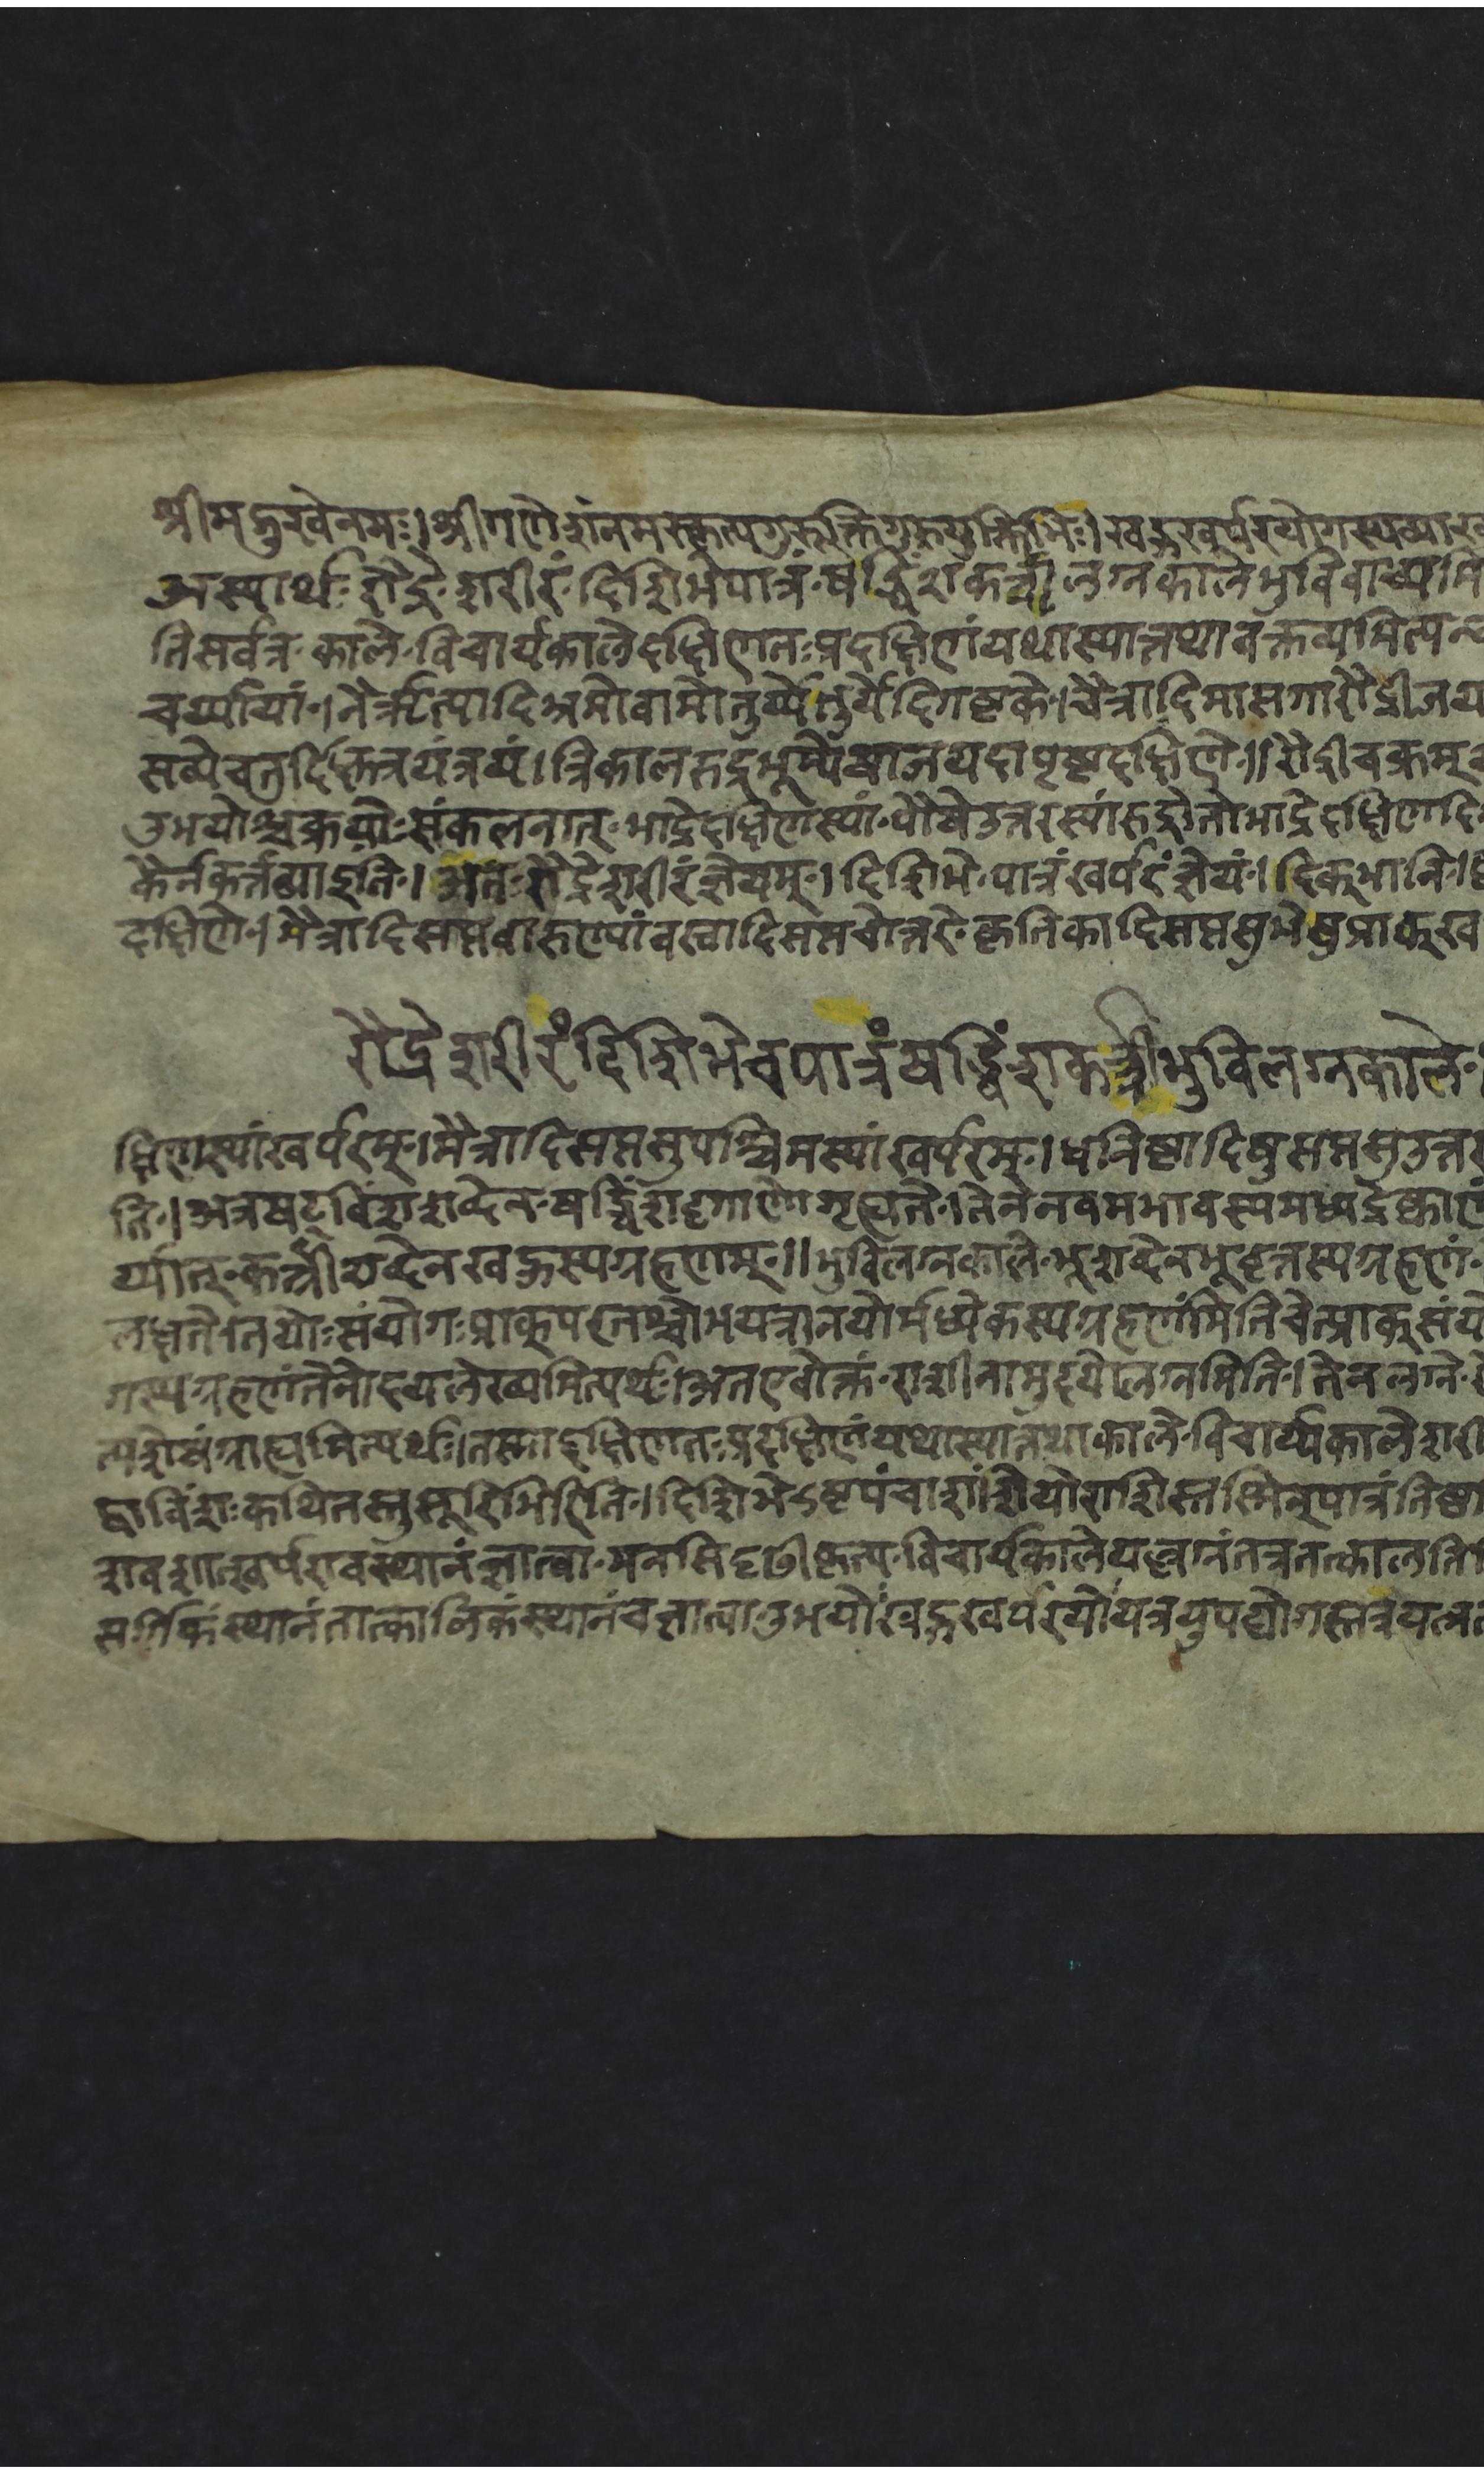 श्रीमद्गुरवेनमः।श्रीगणेशंनमस्कृत्यगुरूक्तिगुरुयुक्तिभिः।खड्गखर्परयोगस्यव्याख
अस्यार्थः रौद्रे शरीरं दिशिभेपात्रं षड्विंशकर्त्री लग्नकालेभुविवाच्यमि
तिसर्वत्र काले विचार्यकालेदक्षिणतःप्रदक्षिणंयथास्यात्तथावक्तव्यमित्यन्व
चर्य्यायां।नैर्ऋत्यादिअमोवामोतुर्य्येतुर्येदिगष्टके।चैत्रादिमासगारौद्रीजय
सव्येचतुर्दिक्षुत्रयंत्रयं।त्रिकालरुद्रभूम्येषाजयदापृष्ठदक्षिणे॥रौद्रीचक्रम्
उभयोश्चक्रयोःसंकलनात् भाद्रेदक्षिणस्यां पौषेउत्तरस्यांरुद्रोतोभाद्रेदक्षिणदि
कैर्नकर्त्तव्याइति।अतःरौद्रेशरीरंज्ञेयम्।दिशिभे पात्रंखर्परंज्ञेयं।दिक्भानि।
दक्षिणे।मैत्रादिसप्तवारुण्यांवस्वादिसप्तचोत्तरे कृतिकादिसप्तसुभेषुप्राक्ख
रौद्रेशरीरंदिशिभेचपात्रंषड्विंशकर्त्रीभुविलग्नकाले
क्षिणस्यांखर्परम्।मैत्रादिसप्तसुपश्चिमस्यांखर्परम्।धनिष्ठादिषुसप्तसुउत्त
ति।अत्रषट्विंशशब्देन षड्विंशदृगाणोगृह्यते।तेननवमभावस्यमध्यद्रेष्काणं
र्य्यात् कर्त्रीशब्देनखड्गस्यग्रहणम्॥भुविलग्नकाले भूशब्देनभूवृत्तस्यग्रहणं
लक्षते।तयोःसंयोगःप्राक्परतश्चोभयत्रानयोर्मध्येकस्यग्रहणंमितिचेत्प्राक्संयो
गस्यग्रहणंतेनोदयलेख्यमित्यर्थः।अतएवोक्तं राशीनामुदयोलग्नमिति।तेनलग्ने
त्यशेषंग्राह्यमित्यर्थः।तस्माद्दक्षिणतःप्रदक्षिणंयथास्यात्तथाकाले विचार्य्यकालेशरी
द्वाविंशःकथितस्तुसूरिभिरिति।दिशिभेऽष्टपंचाशांशेयोराशिस्तस्मिन्पात्रंतिष्ठ
शवशात्खर्परावस्थानंज्ञात्वा मनसिदृढीकृत्य विचार्यकालेयल्लग्नंतत्रतत्कालति
सतिकंस्थानंतात्कालिकंस्थानंचज्ञात्वाउभयोःखड्गखर्परयोर्यत्रयुपद्योगस्तत्रयत्न